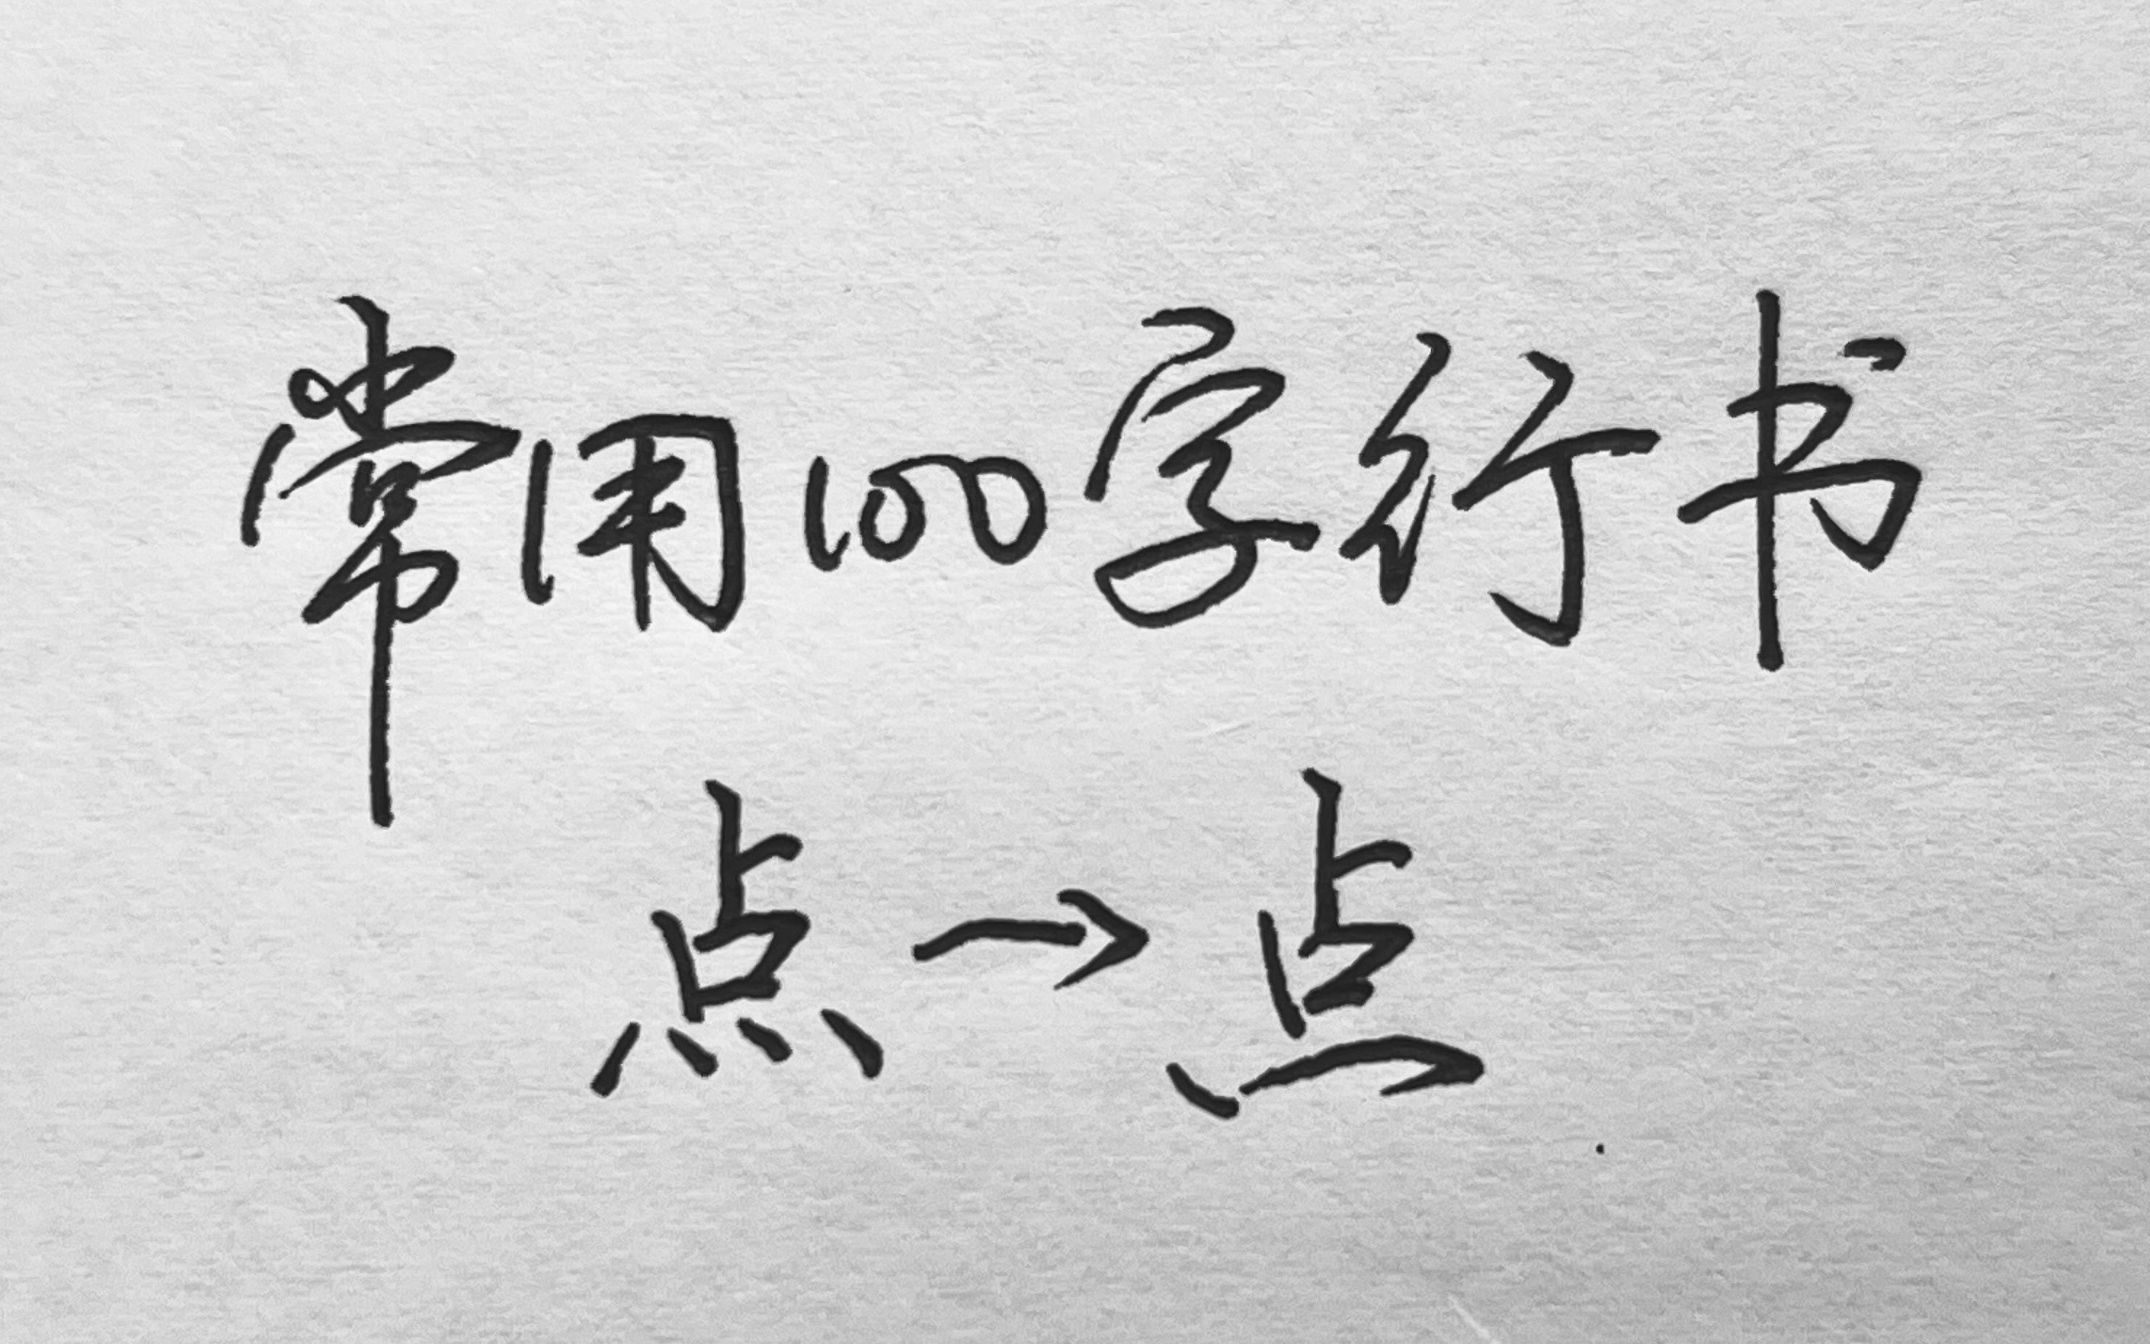 常用100字行书
点→点